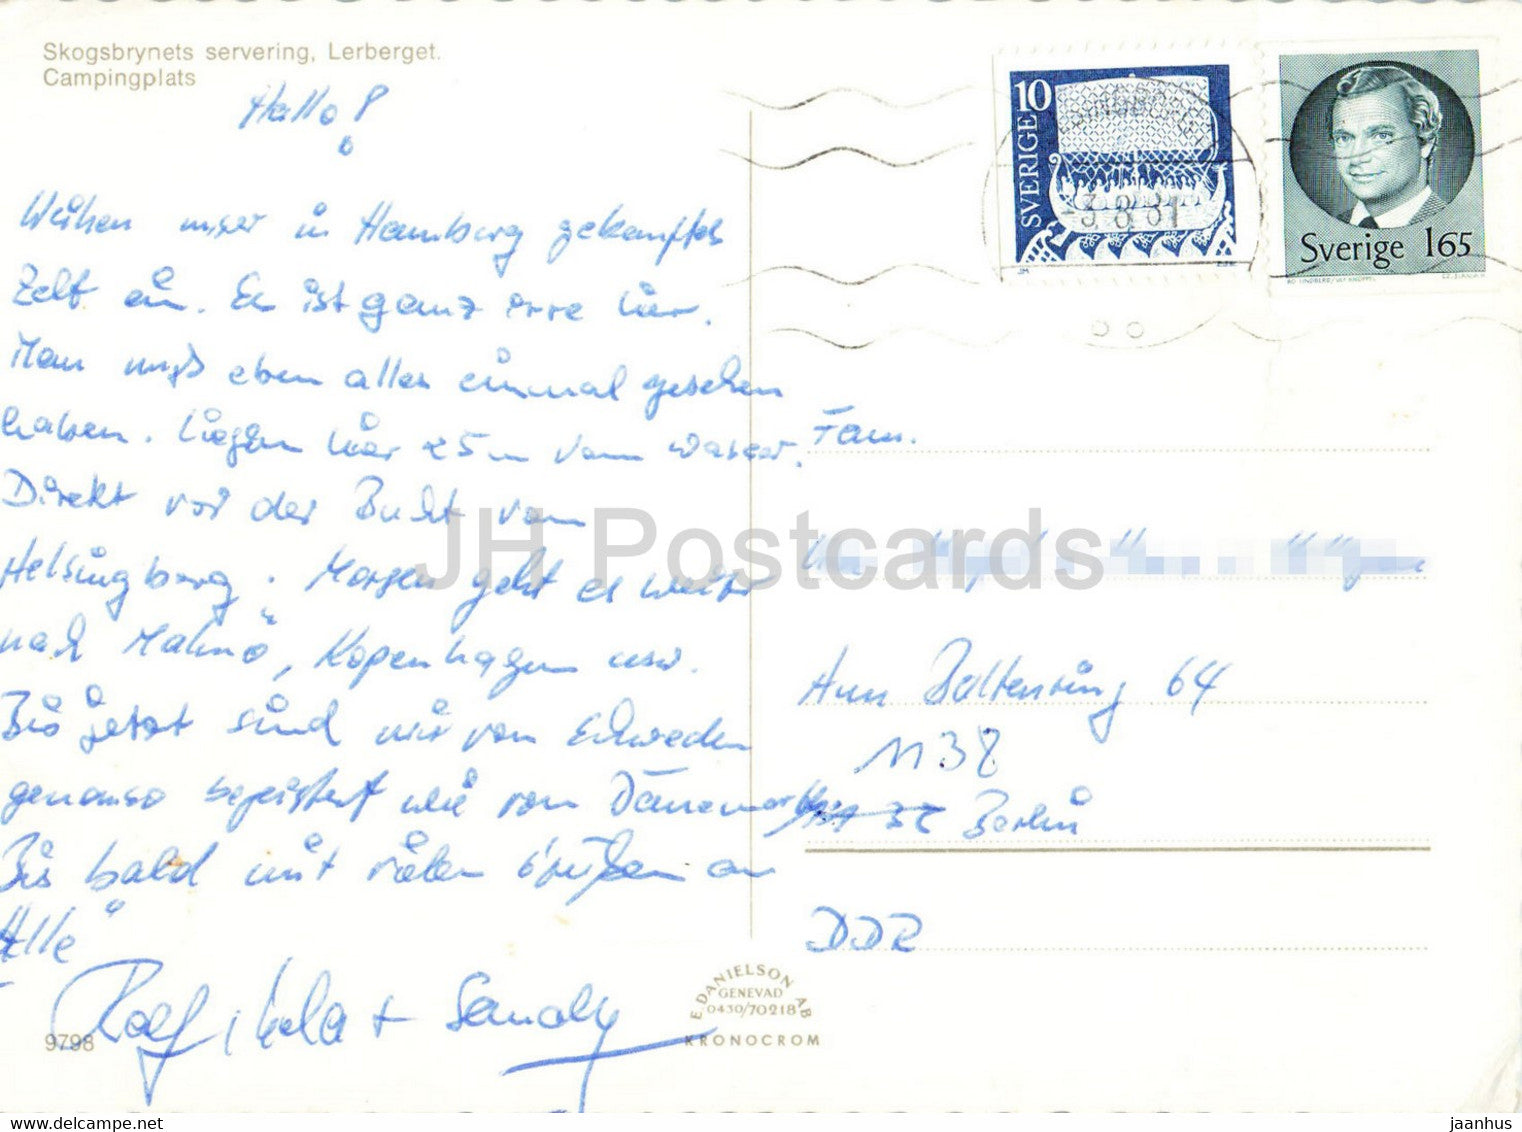 Skogsbrynets servering, Lerberget.
Campingplats
Hallo!
Weihen unser in Hamburg gekauftes
Zelt ein. Es ist ganz irre hier.
Man muß eben alles einmal gesehen
haben. Liegen hier 25 m vom Wasser.
Direkt vor der Bucht von
Helsingborg. Morgen geht es weiter
nach Malmö, Kopenhagen usw.
Bis jetzt sind wir von Schweden
genauso begeistert wie von Dänemark
Bis bald mit vielen Grüßen an
Alle
Rolf, + Sandy
9798
SVERIGE 10
3.8.81
Sverige 165
Fam.
Am Baltenring 64
1138
Berlin
DDR
E. DANIELSON AB
GENEVAD
0430/70218
KRONOCROM
JH Postcards
delcampe.net
jaanhus